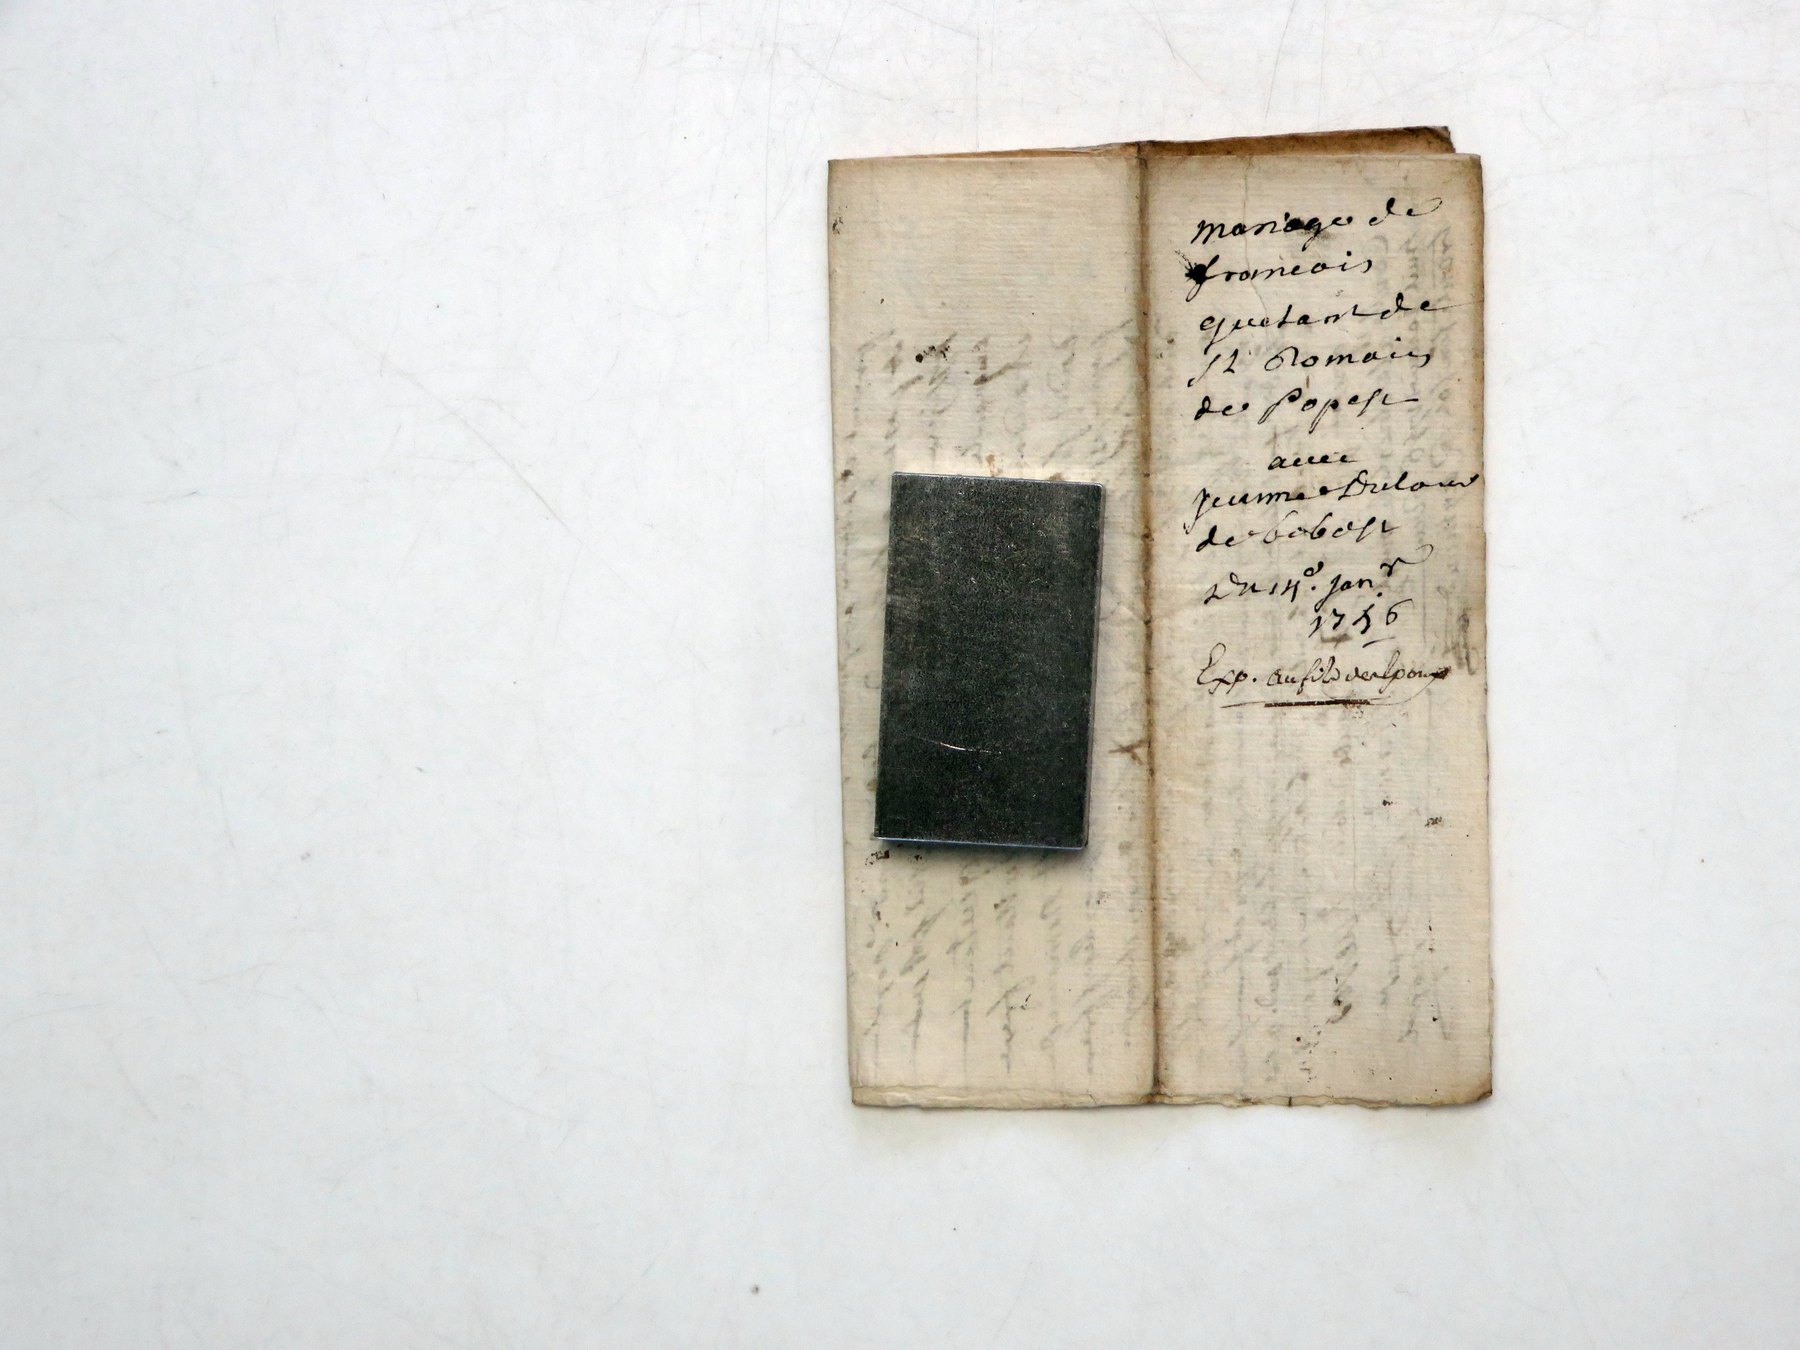 mariage de
francois
quetant de
st Romain
de Popest
avec
jeanne Dulour
de bobost
Du 14e. janr.
1756
Exp. au fils de lepoux